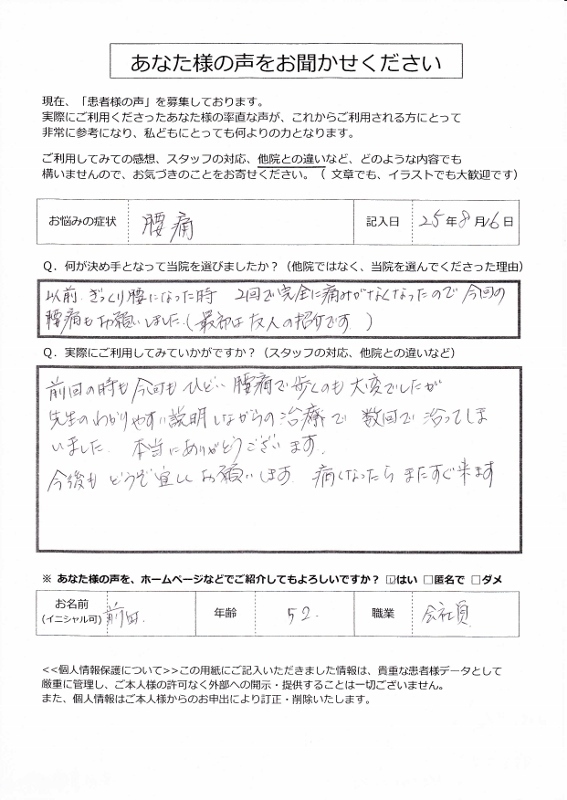 あなた様の声をお聞かせください
現在、「患者様の声」を募集しております。
実際にご利用くださったあなた様の率直な声が、これからご利用される方にとって
非常に参考になり、私どもにとっても何よりの力となります。
ご利用してみての感想、スタッフの対応、他院との違いなど、どのような内容でも
構いませんので、お気づきのことをお寄せください。（ 文章でも、イラストでも大歓迎です）
お悩みの症状 腰痛 記入日 25年8月16日
Q．何が決め手となって当院を選びましたか？（他院ではなく、当院を選んでくださった理由）
以前 ぎっくり腰になった時 2回で完全に痛みがなくなったので 今回の
腰痛も お願いしました。（最初は友人の紹介です ）
Q．実際にご利用してみていかがですか？（スタッフの対応、他院との違いなど）
前回の時も 今回も ひどい 腰痛で 歩くのも 大変でしたが
先生の わかりやすい 説明しながらの 治療で 数回で 治ってしま
いました。 本当に ありがとうございます。
今後も どうぞ宜しく お願いします 痛くなったら またすぐ来ます
※ あなた様の声を、ホームページなどでご紹介してもよろしいですか？ ☑はい □匿名で □ダメ
お名前 前田 年齢 52. 職業 会社員
(イニシャル可)
<<個人情報保護について>>この用紙にご記入いただきました情報は、貴重な患者様データとして
厳重に管理し、ご本人様の許可なく外部への開示・提供することは一切ございません。
また、個人情報はご本人様からのお申出により訂正・削除いたします。